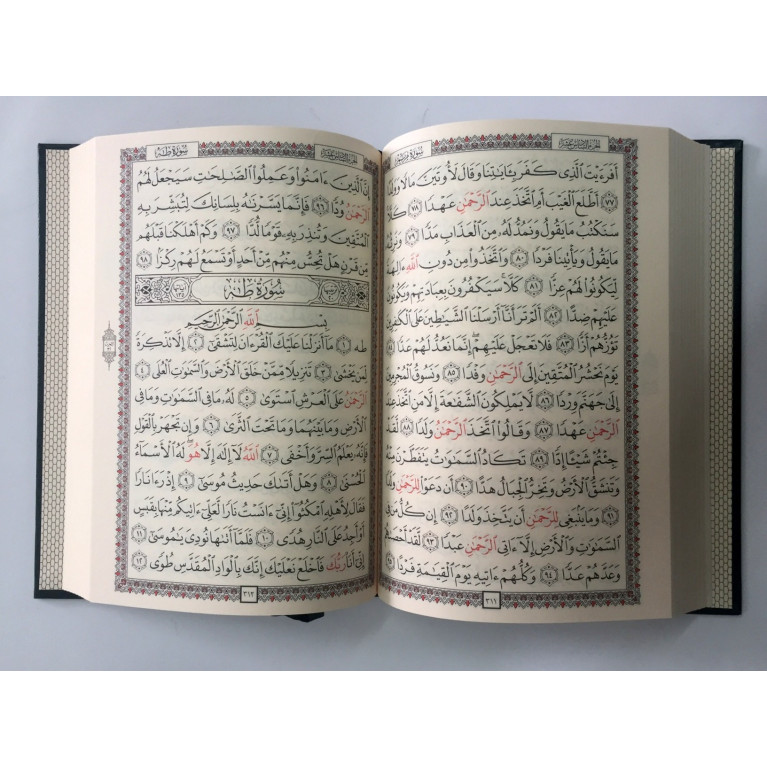 سورة مريم
أفرءيت الذى كفر بـٔايٰتنا وقال لأوتين مالا وولدا
٧٧ أطلع الغيب أم اتخذ عند الرحمٰن عهدا ٧٨ كلا
سنكتب ما يقول ونمد له من العذاب مدا ٧٩ ونرثه
ما يقول ويأتينا فردا ٨٠ واتخذوا من دون الله ءالهة
ليكونوا لهم عزا ٨١ كلا سيكفرون بعبادتهم ويكونون
عليهم ضدا ٨٢ ألم تر أنا أرسلنا الشيٰطين على الكٰفرين
تؤزهم أزا ٨٣ فلا تعجل عليهم إنما نعد لهم عدا ٨٤
يوم نحشر المتقين إلى الرحمٰن وفدا ٨٥ ونسوق المجرمين
إلى جهنم وردا ٨٦ لا يملكون الشفٰعة إلا من اتخذ عند
الرحمٰن عهدا ٨٧ وقالوا اتخذ الرحمٰن ولدا ٨٨ لقد
جئتم شيـٔا إدا ٨٩ تكاد السمٰوٰت يتفطرن منه
وتنشق الأرض وتخر الجبال هدا ٩٠ أن دعوا للرحمٰن ولدا
٩١ وما ينبغى للرحمٰن أن يتخذ ولدا ٩٢ إن كل من فى
السمٰوٰت والأرض إلا ءاتى الرحمٰن عبدا ٩٣ لقد أحصىٰهم
وعدهم عدا ٩٤ وكلهم ءاتيه يوم القيٰمة فردا ٩٥
٣١١
سورة طه
إن الذين ءامنوا وعملوا الصٰلحٰت سيجعل لهم
الرحمٰن ودا ٩٦ فإنما يسرنٰه بلسانك لتبشر به
المتقين وتنذر به قوما لدا ٩٧ وكم أهلكنا قبلهم
من قرن هل تحس منهم من أحد أو تسمع لهم ركزا ٩٨
سورة طه
بسم الله الرحمٰن الرحيم
طه ١ ما أنزلنا عليك القرءان لتشقىٰ ٢ إلا تذكرة
لمن يخشىٰ ٣ تنزيلا ممن خلق الأرض والسمٰوٰت العلى ٤
الرحمٰن على العرش استوىٰ ٥ له ما فى السمٰوٰت وما فى
الأرض وما بينهما وما تحت الثرىٰ ٦ وإن تجهر بالقول
فإنه يعلم السر وأخفى ٧ الله لا إلٰه إلا هو له الأسماء
الحسنىٰ ٨ وهل أتىٰك حديث موسىٰ ٩ إذ رءا نارا
فقال لأهله امكثوا إنى ءانست نارا لعلى ءاتيكم منها بقبس
أو أجد على النار هدى ١٠ فلما أتىٰها نودى يٰموسىٰ ١١
إنى أنا ربك فاخلع نعليك إنك بالواد المقدس طوى ١٢
٣١٢